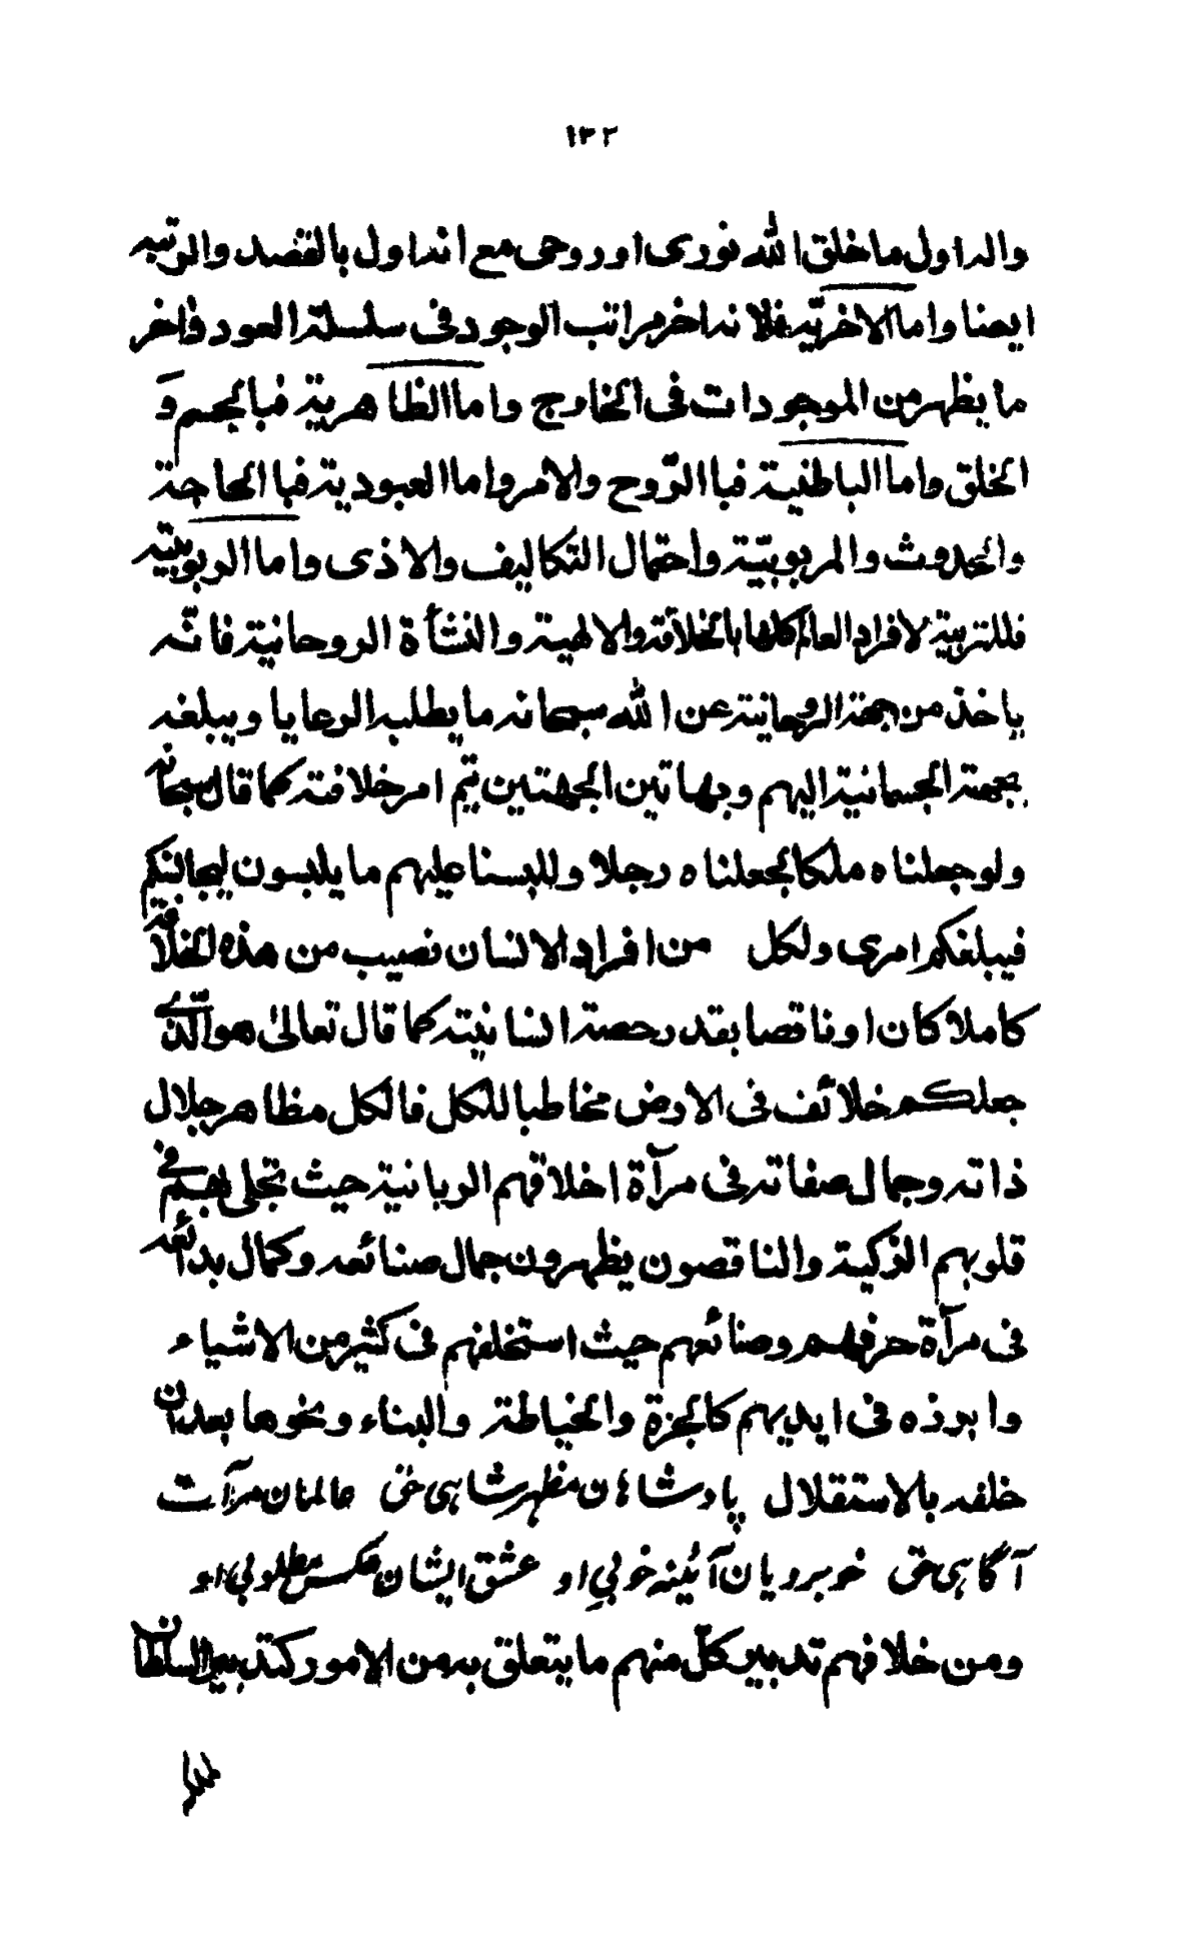 ١٣٢
والد اول ما خلق الله نوری او روحی مع انه اول بالقصد والرتبه
ایضا واما الاخریّه فلانه اخر مراتب الوجود فی سلسلة العود واخر
ما یظهر من الموجودات فی الخارج واما الظاهریة فبالجسم وَ
الخلق واما الباطنیة فبا الرّوح والامر واما العبودیة فبا الحاجة
والحدوث والمربوبیّة واحتمال التکالیف والاذی واما الربوبیّه
فللتربیة لافراد العالم کلها بالخلافة والالهیة والنشأة الروحانیة فانّه
یاخذ من جهة الروحانیة عن الله سبحانه ما یطلبه الرعایا ویبلغه
بجهة الجسمانیة الیهم وبهاتین الجهتین یتم امر خلافته کما قال سبحانه
ولو جعلناه ملکا لجعلناه رجلا وللبسنا علیهم ما یلبسون لیجانسکم
فیبلغکم امری ولکل من افراد الانسان نصیب من هذه الخلافة
کاملا کان او ناقصا بقدر حصة انسانیته کما قال تعالیٰ هو الّذی
جعلکم خلائف فی الارض مخاطبا للکل فالکل مظاهر جلال
ذاته وجمال صفاته فی مرآة اخلاقهم الربانیة حیث تجلی لهم فی
قلوبهم الذکیة والناقصون یظهرون جمال صنائعه وکمال بدائعه
فی مرآة حرفهم وصنائعهم حیث استخلفهم فی کثیر من الاشیاء
وابرزه فی ایدیهم کالخبزة والخیاطة والبناء ونحوها بعد ان
خلقه بالاستقلال پادشاهان مظهر شاهی حق عالمان مرآت
آگاهی حق خوبرویان آئینه خوبی او عشق ایشان عکس مطلوبی او
ومن خلافهم تدبیر کلّ منهم ما یتعلق به من الامور کتدبیر السلطان